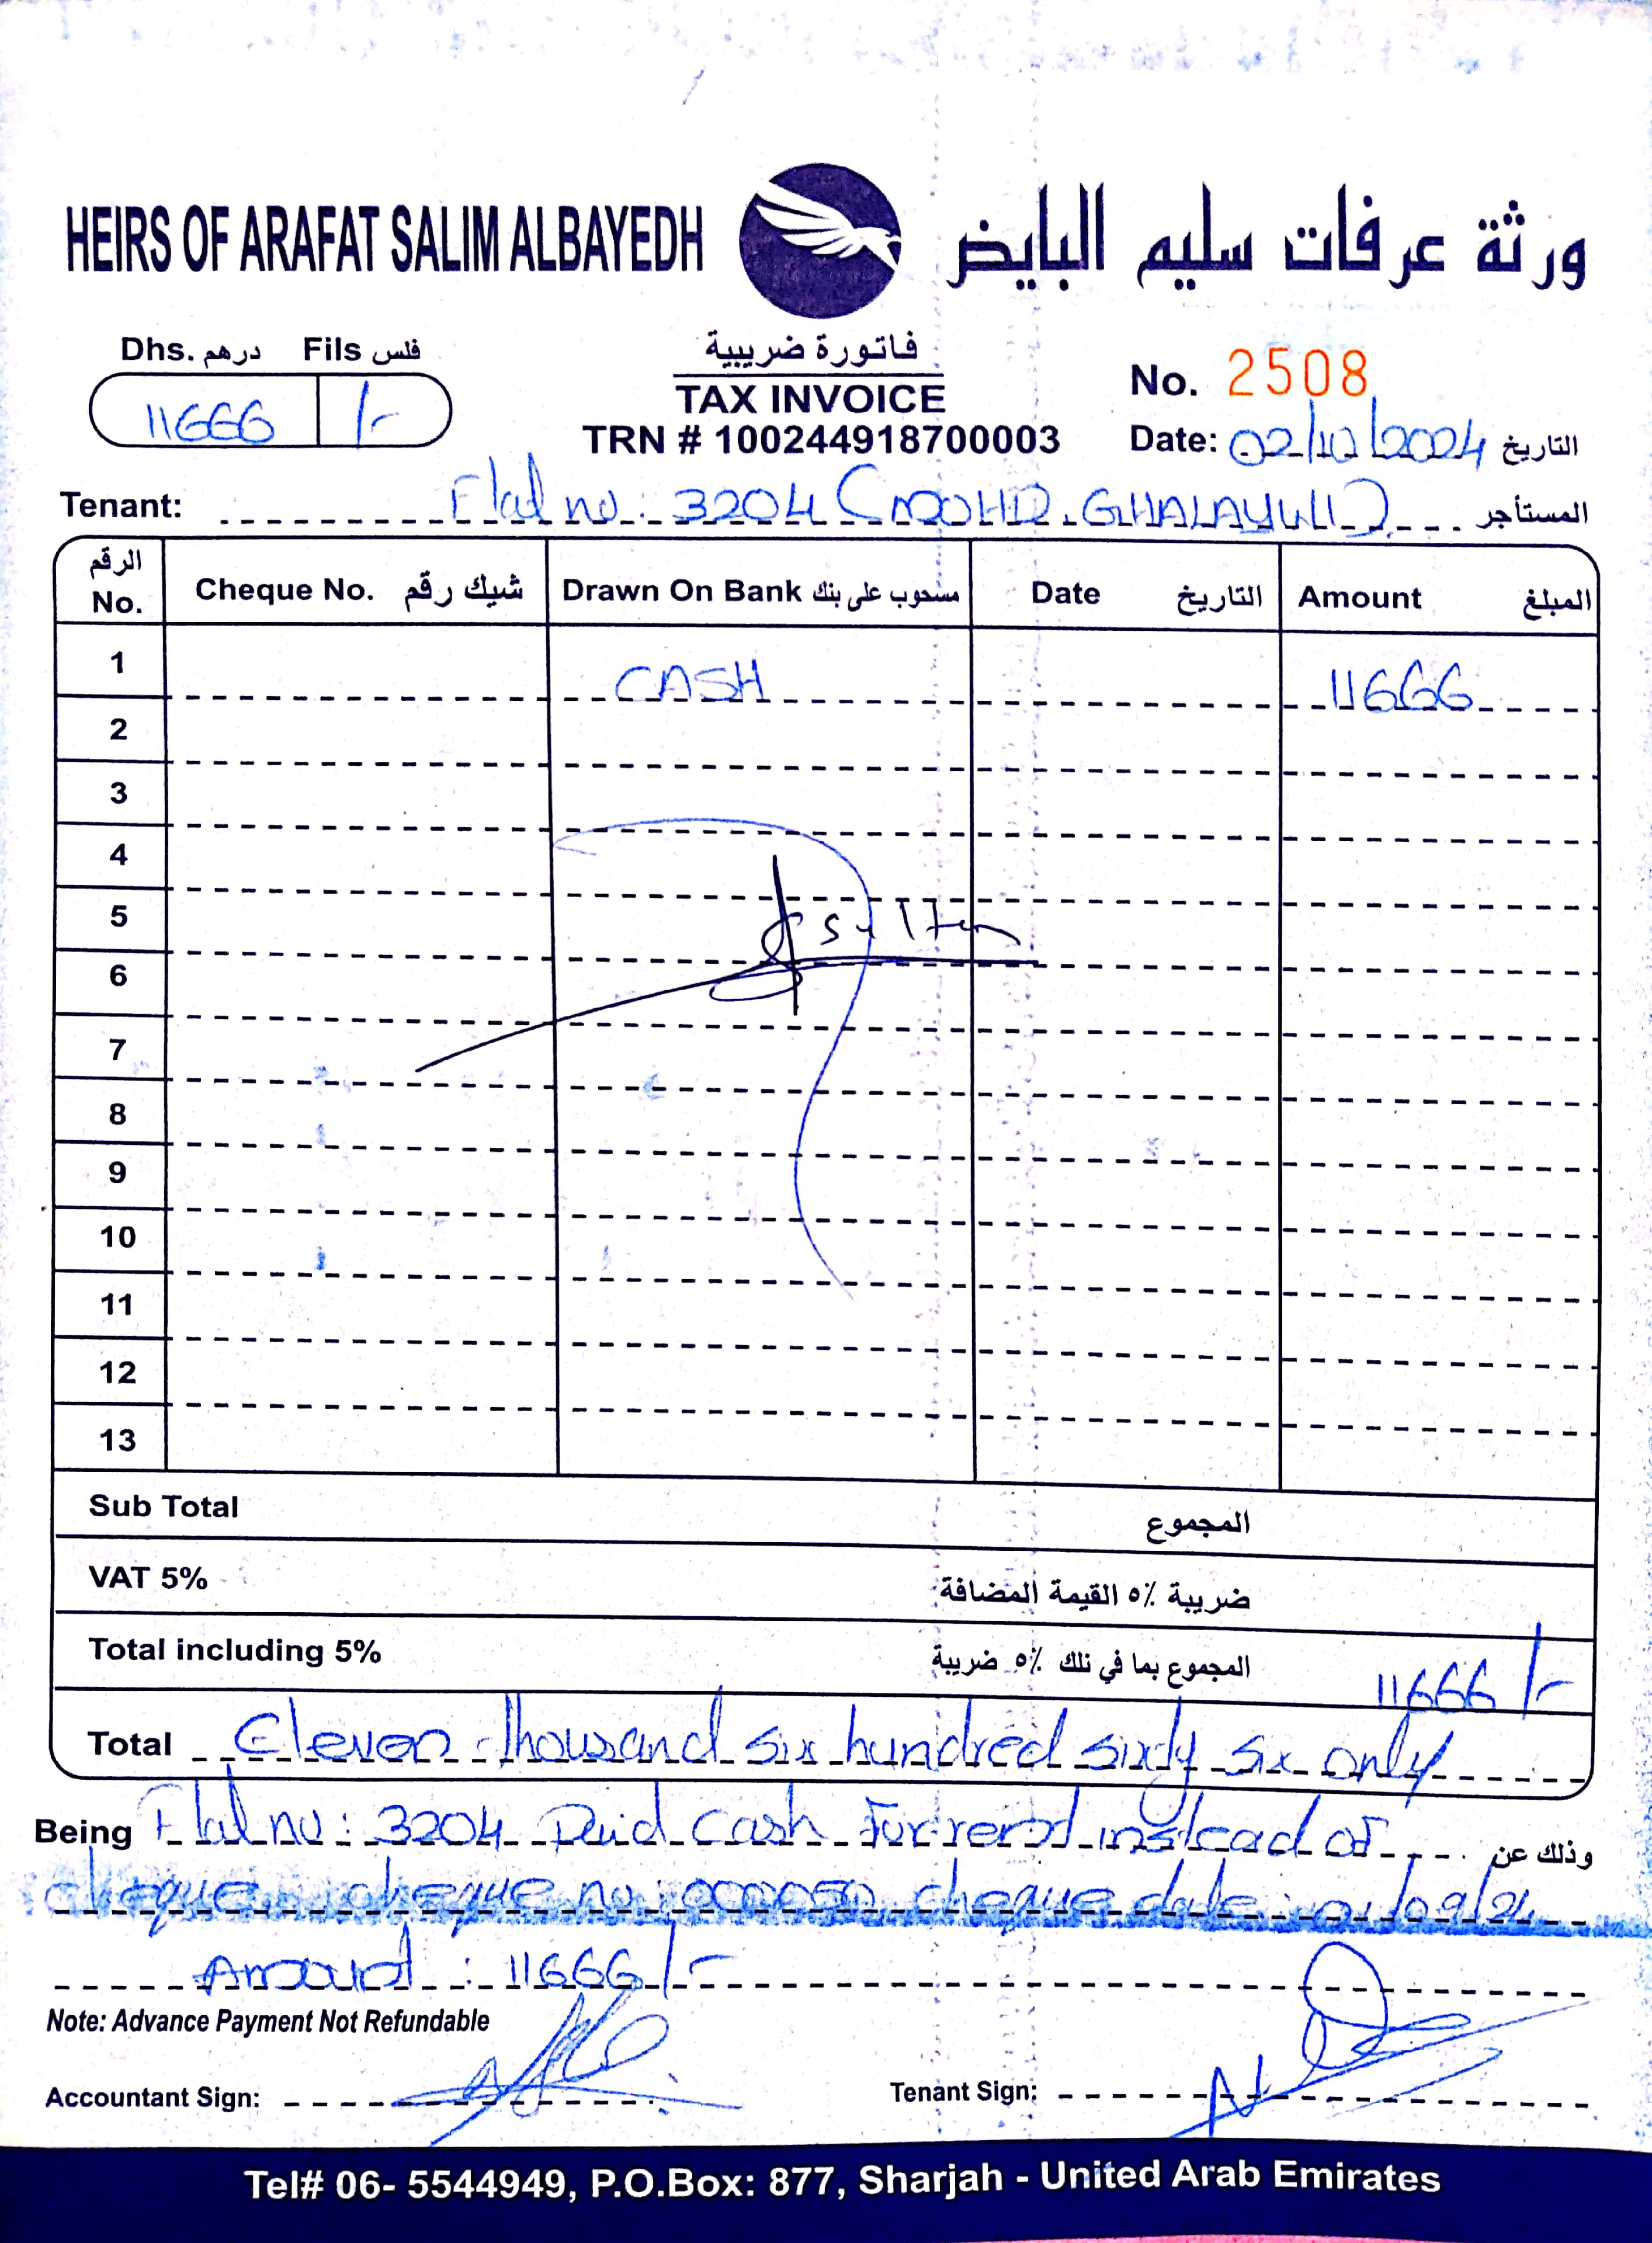 HEIRS OF ARAFAT SALIM ALBAYEDH ورثة عرفات سليم البايض
Dhs. درهم Fils فلس
11666 /-
فاتورة ضريبية
TAX INVOICE
TRN # 100244918700003
No. 2508
Date: 02/10/2024 التاريخ
Tenant: Flat no: 3204 (MOHD. GHALAYINI) المستأجر
الرقم No. Cheque No. شيك رقم Drawn On Bank مسحوب على بنك Date التاريخ Amount المبلغ
1 CASH 11666
2
3
4
5
6
7
8
9
10
11
12
13
Sub Total المجموع
VAT 5% ضريبة ٥٪ القيمة المضافة
Total including 5% المجموع بما في تلك ٥٪ ضريبة 11666/-
Total Eleven thousand six hundred sixty six only
Being Flat no: 3204 Paid cash for rent instead of وذلك عن
cheque: cheque no: 000050 cheque date: 01/09/24
Amount: 11666/-
Note: Advance Payment Not Refundable
Accountant Sign: Tenant Sign:
Tel# 06- 5544949, P.O.Box: 877, Sharjah - United Arab Emirates